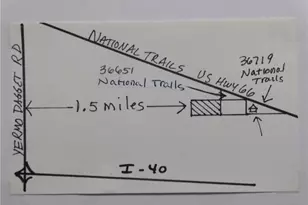 NATIONAL TRAILS US HWY 66
36719
National
Trails
36651
National Trails
1.5 miles
YERMO DAGGET RD
I-40